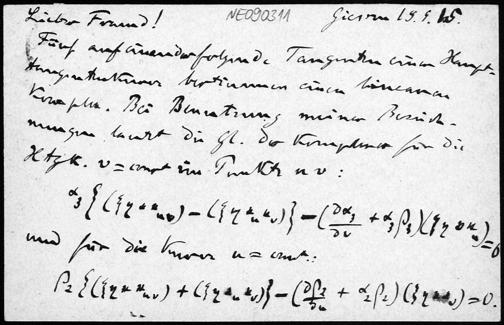 Lieber Freund! NE090311 Giessen 19.9.15.
Fünf aufeinanderfolgende Tangenten einer Haupt-
tangentenkurve bestimmen einen linearen
Komplex. Bei Benutzung meiner Bezeich-
nungen lautet die Gl. des Komplexes für die
Htgk. v = const im Punkte u v:
α₃{(ξ η x x_{uv}) − (ξ η x_u x_v)} − (∂α₃/∂v + α₃β₃)(ξ η x x_u) = 0
und für die Kurve u = const:
β₂{(ξ η x x_{uv}) + (ξ η x_u x_v)} − (∂β₂/∂u + α₂β₂)(ξ η x x_v) = 0.